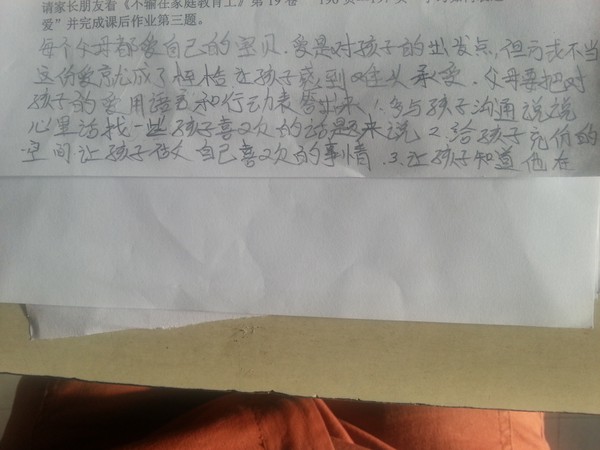 请家长朋友看《不输在家庭教育上》第19卷
爱”并完成课后作业第三题。
每个父母都爱自己的宝贝.爱是对孩子的出发点,但方式不当
这份爱就成了枷锁让孩子感到难以承受.父母要把对
孩子的爱用语言和行动表答出来1.多与孩子沟通说说
心里话找一些孩子喜欢的话题来说2.给孩子充份的
空间让孩子做自己喜欢的事情.3.让孩子知道他在